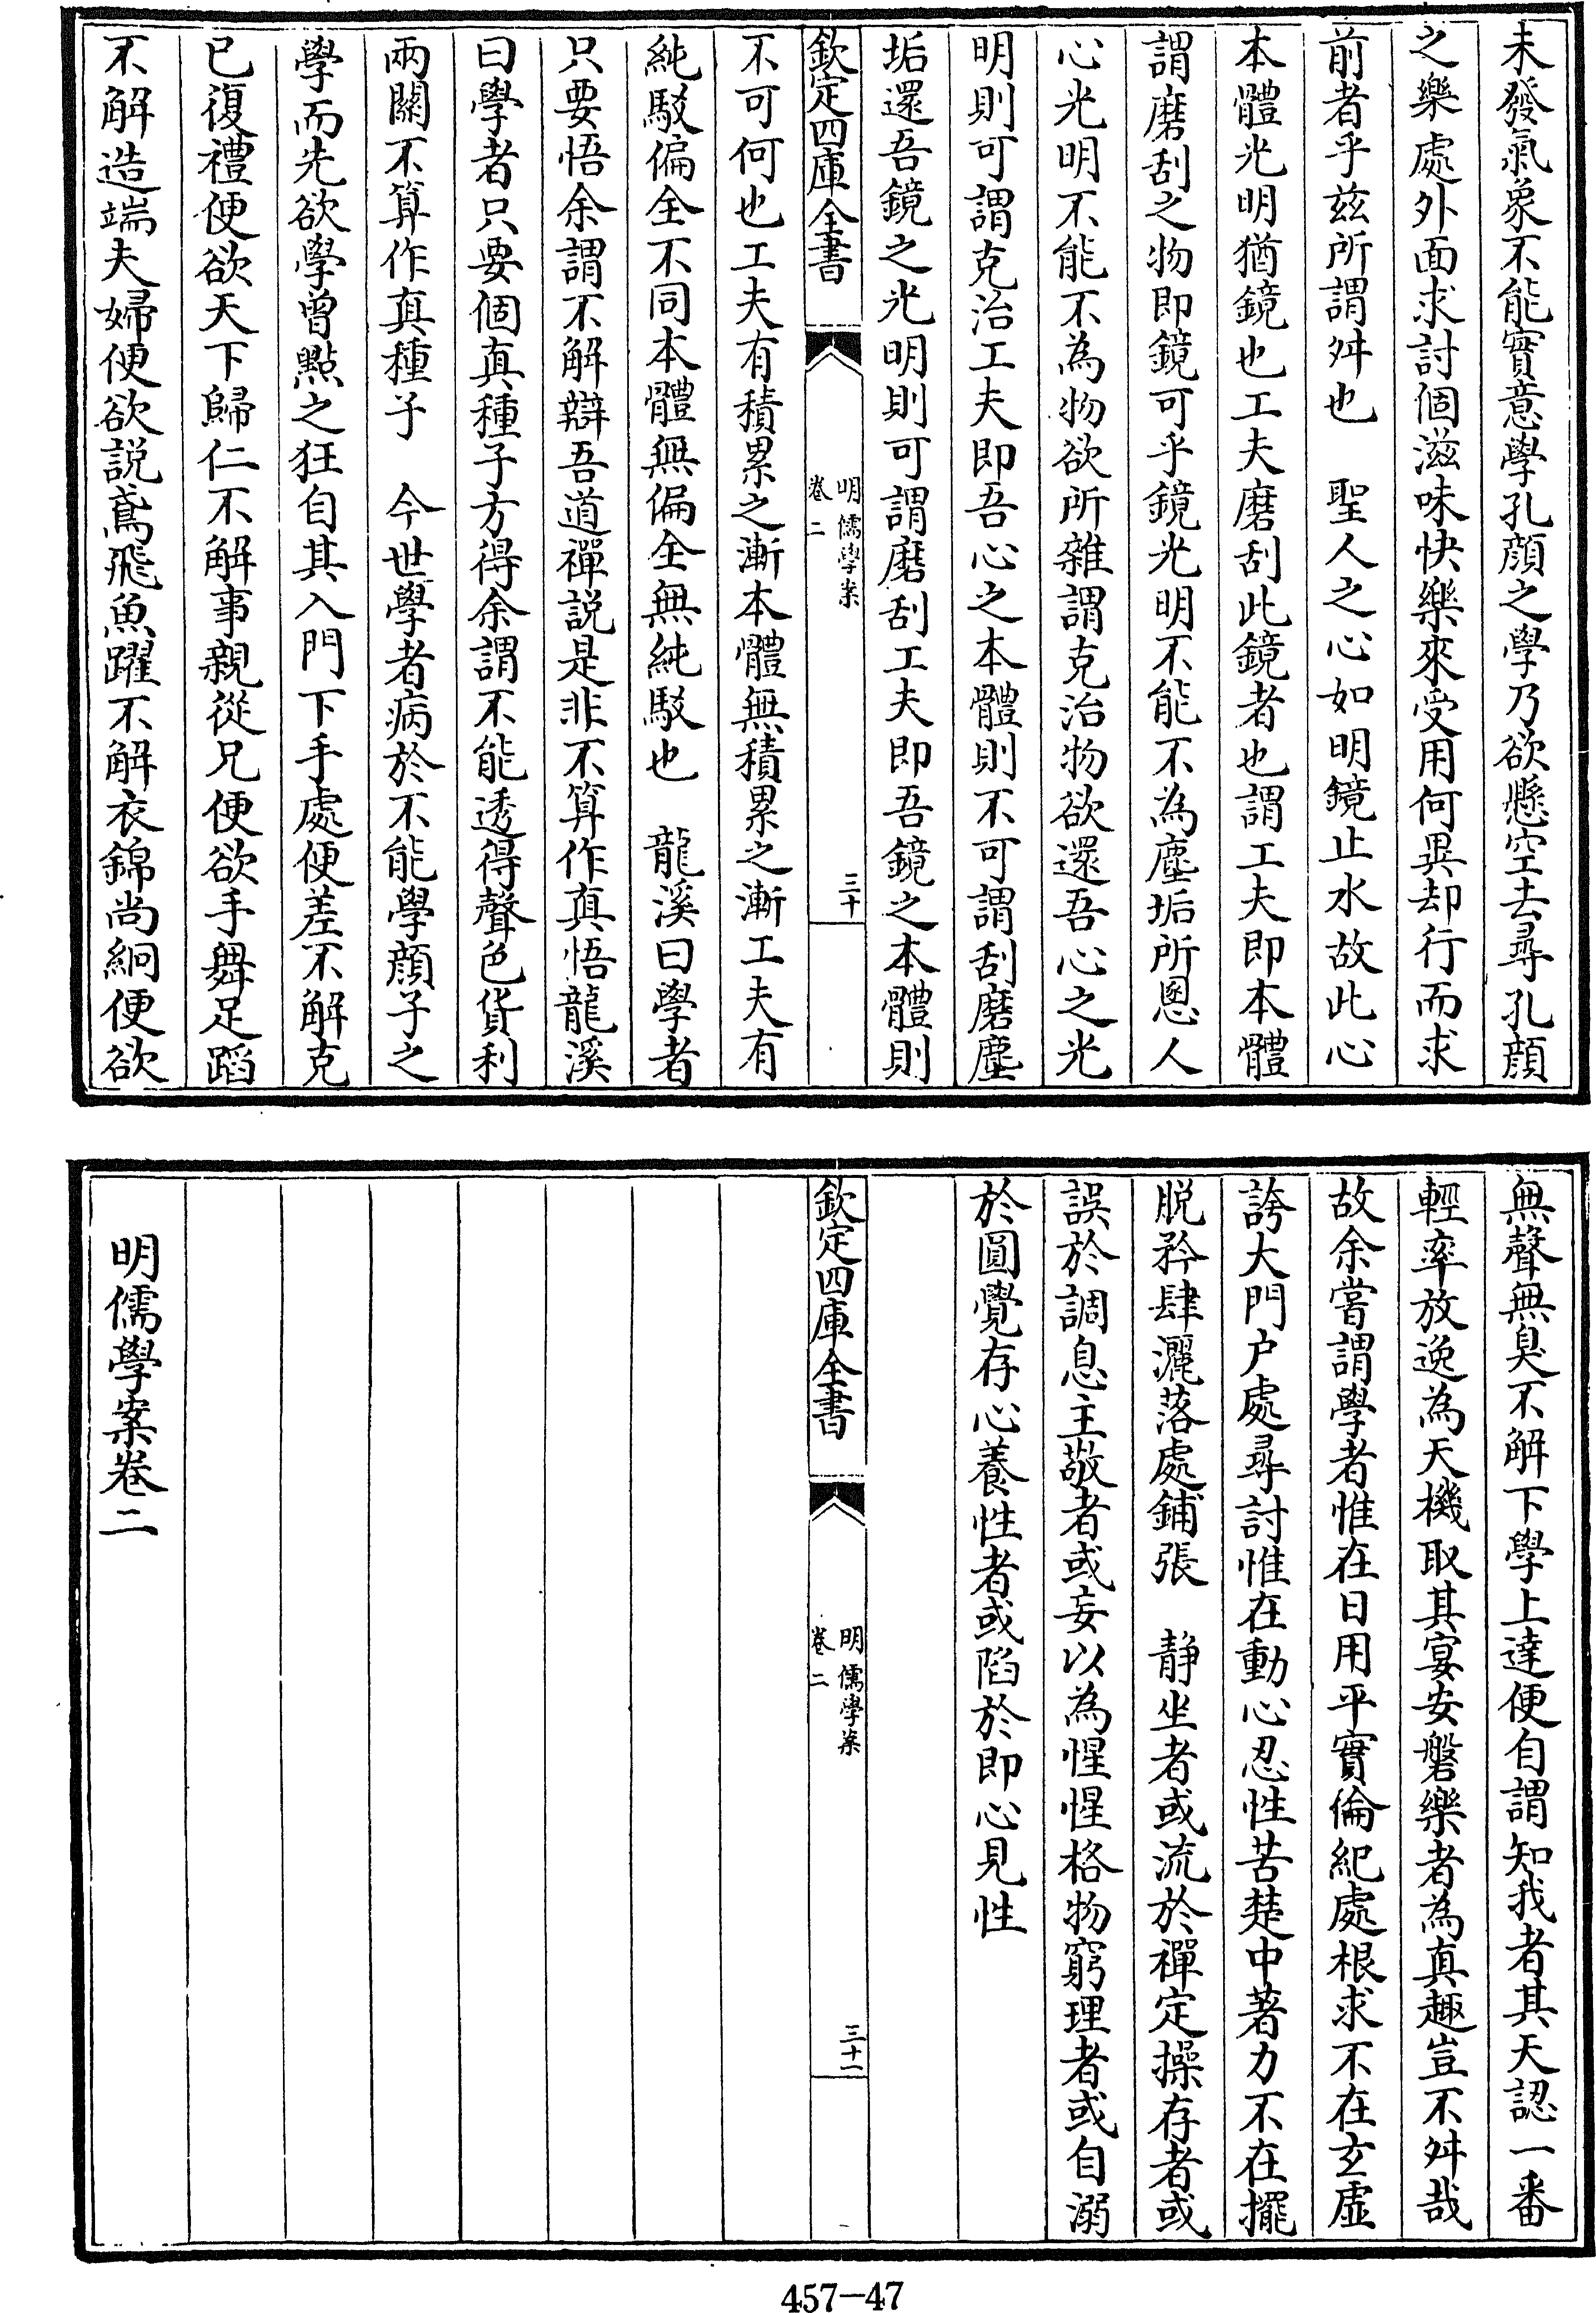 未發氣象不能實意學孔顔之學乃欲懸空去尋孔顔
之樂處外面求討個滋味快樂來受用何異却行而求
前者乎兹所謂舛也　聖人之心如明鏡止水故此心
本體光明猶鏡也工夫磨刮此鏡者也謂工夫即本體
謂磨刮之物即鏡可乎鏡光明不能不為塵垢所慁人
心光明不能不為物欲所雜謂克治物欲還吾心之光
明則可謂克治工夫即吾心之本體則不可謂刮磨塵
垢還吾鏡之光明則可謂磨刮工夫即吾鏡之本體則
欽定四庫全書
明儒學案
卷二
三十
不可何也工夫有積累之漸本體無積累之漸工夫有
純駁偏全不同本體無偏全無純駁也　龍溪曰學者
只要悟余謂不解辯吾道禪説是非不算作真悟龍溪
曰學者只要個真種子方得余謂不能透得聲色貨利
兩關不算作真種子　今世學者病於不能學顔子之
學而先欲學曾點之狂自其入門下手處便差不解克
已復禮便欲天下歸仁不解事親從兄便欲手舞足蹈
不解造端夫婦便欲説鳶飛魚躍不解衣錦尚絅便欲
無聲無臭不解下學上達便自謂知我者其天認一番
輕率放逸為天機取其宴安磐樂者為真趣豈不舛哉
故余嘗謂學者惟在日用平實倫紀處根求不在玄虚
誇大門户處尋討惟在動心忍性苦楚中著力不在擺
脱矜肆灑落處鋪張　静坐者或流於禪定操存者或
誤於調息主敬者或妄以為惺惺格物窮理者或自溺
於圓覺存心養性者或陷於即心見性
欽定四庫全書
明儒學案
卷二
三十一
明儒學案卷二
457-47